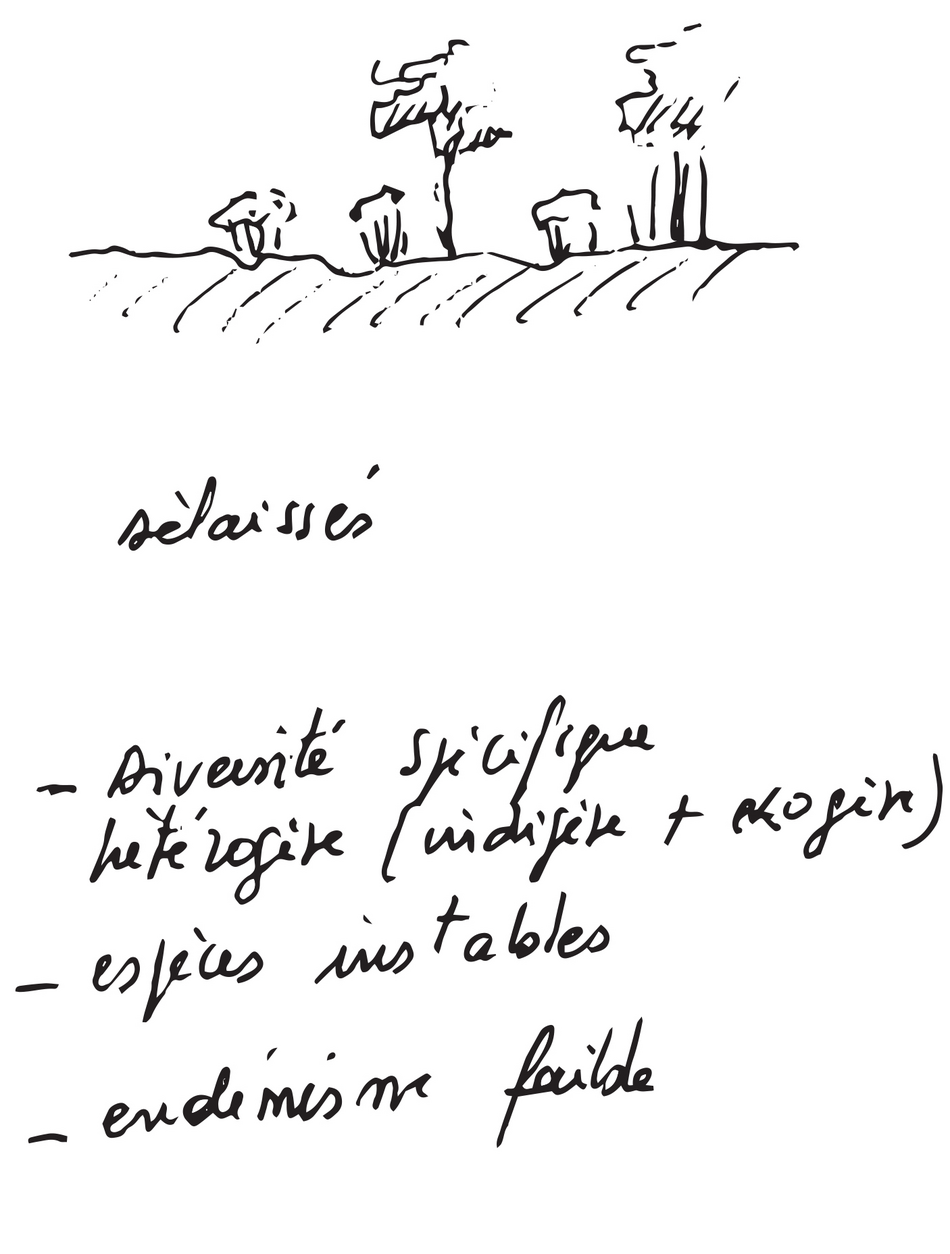 délaissés
- diversité spécifique
hétérogène (indigène + exogène)
- espèces instables
- endémisme faible